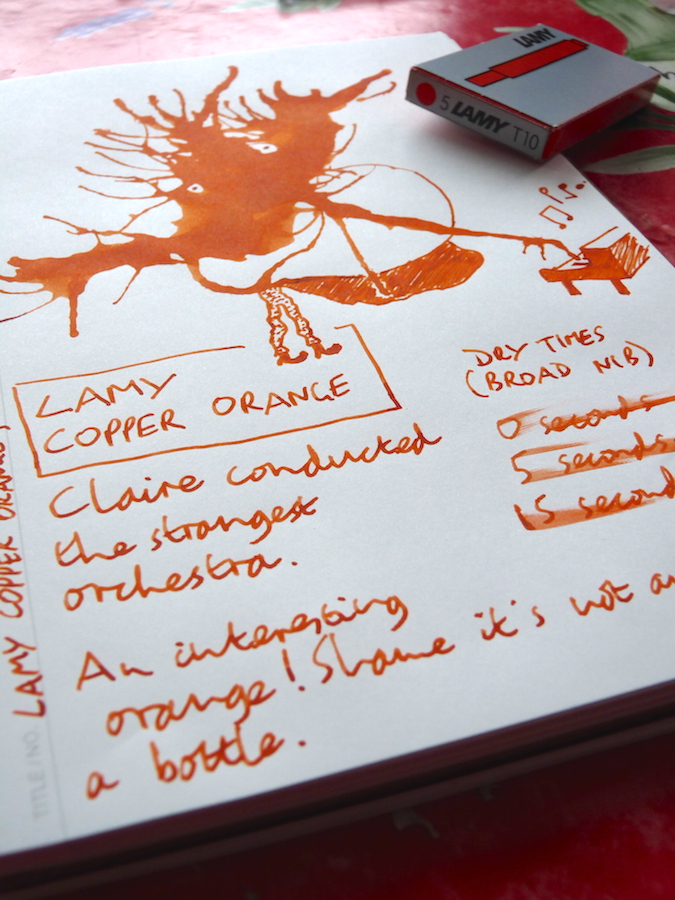 LAMY
5 LAMY T10
LAMY
COPPER ORANGE
DRY TIMES
(BROAD NIB)
0 seconds
5 seconds
15 seconds
Claire conducted
the strangest
orchestra.
An interesting
orange! Shame it's not
a bottle.
LAMY COPPER ORANGE
TITLE/NO.